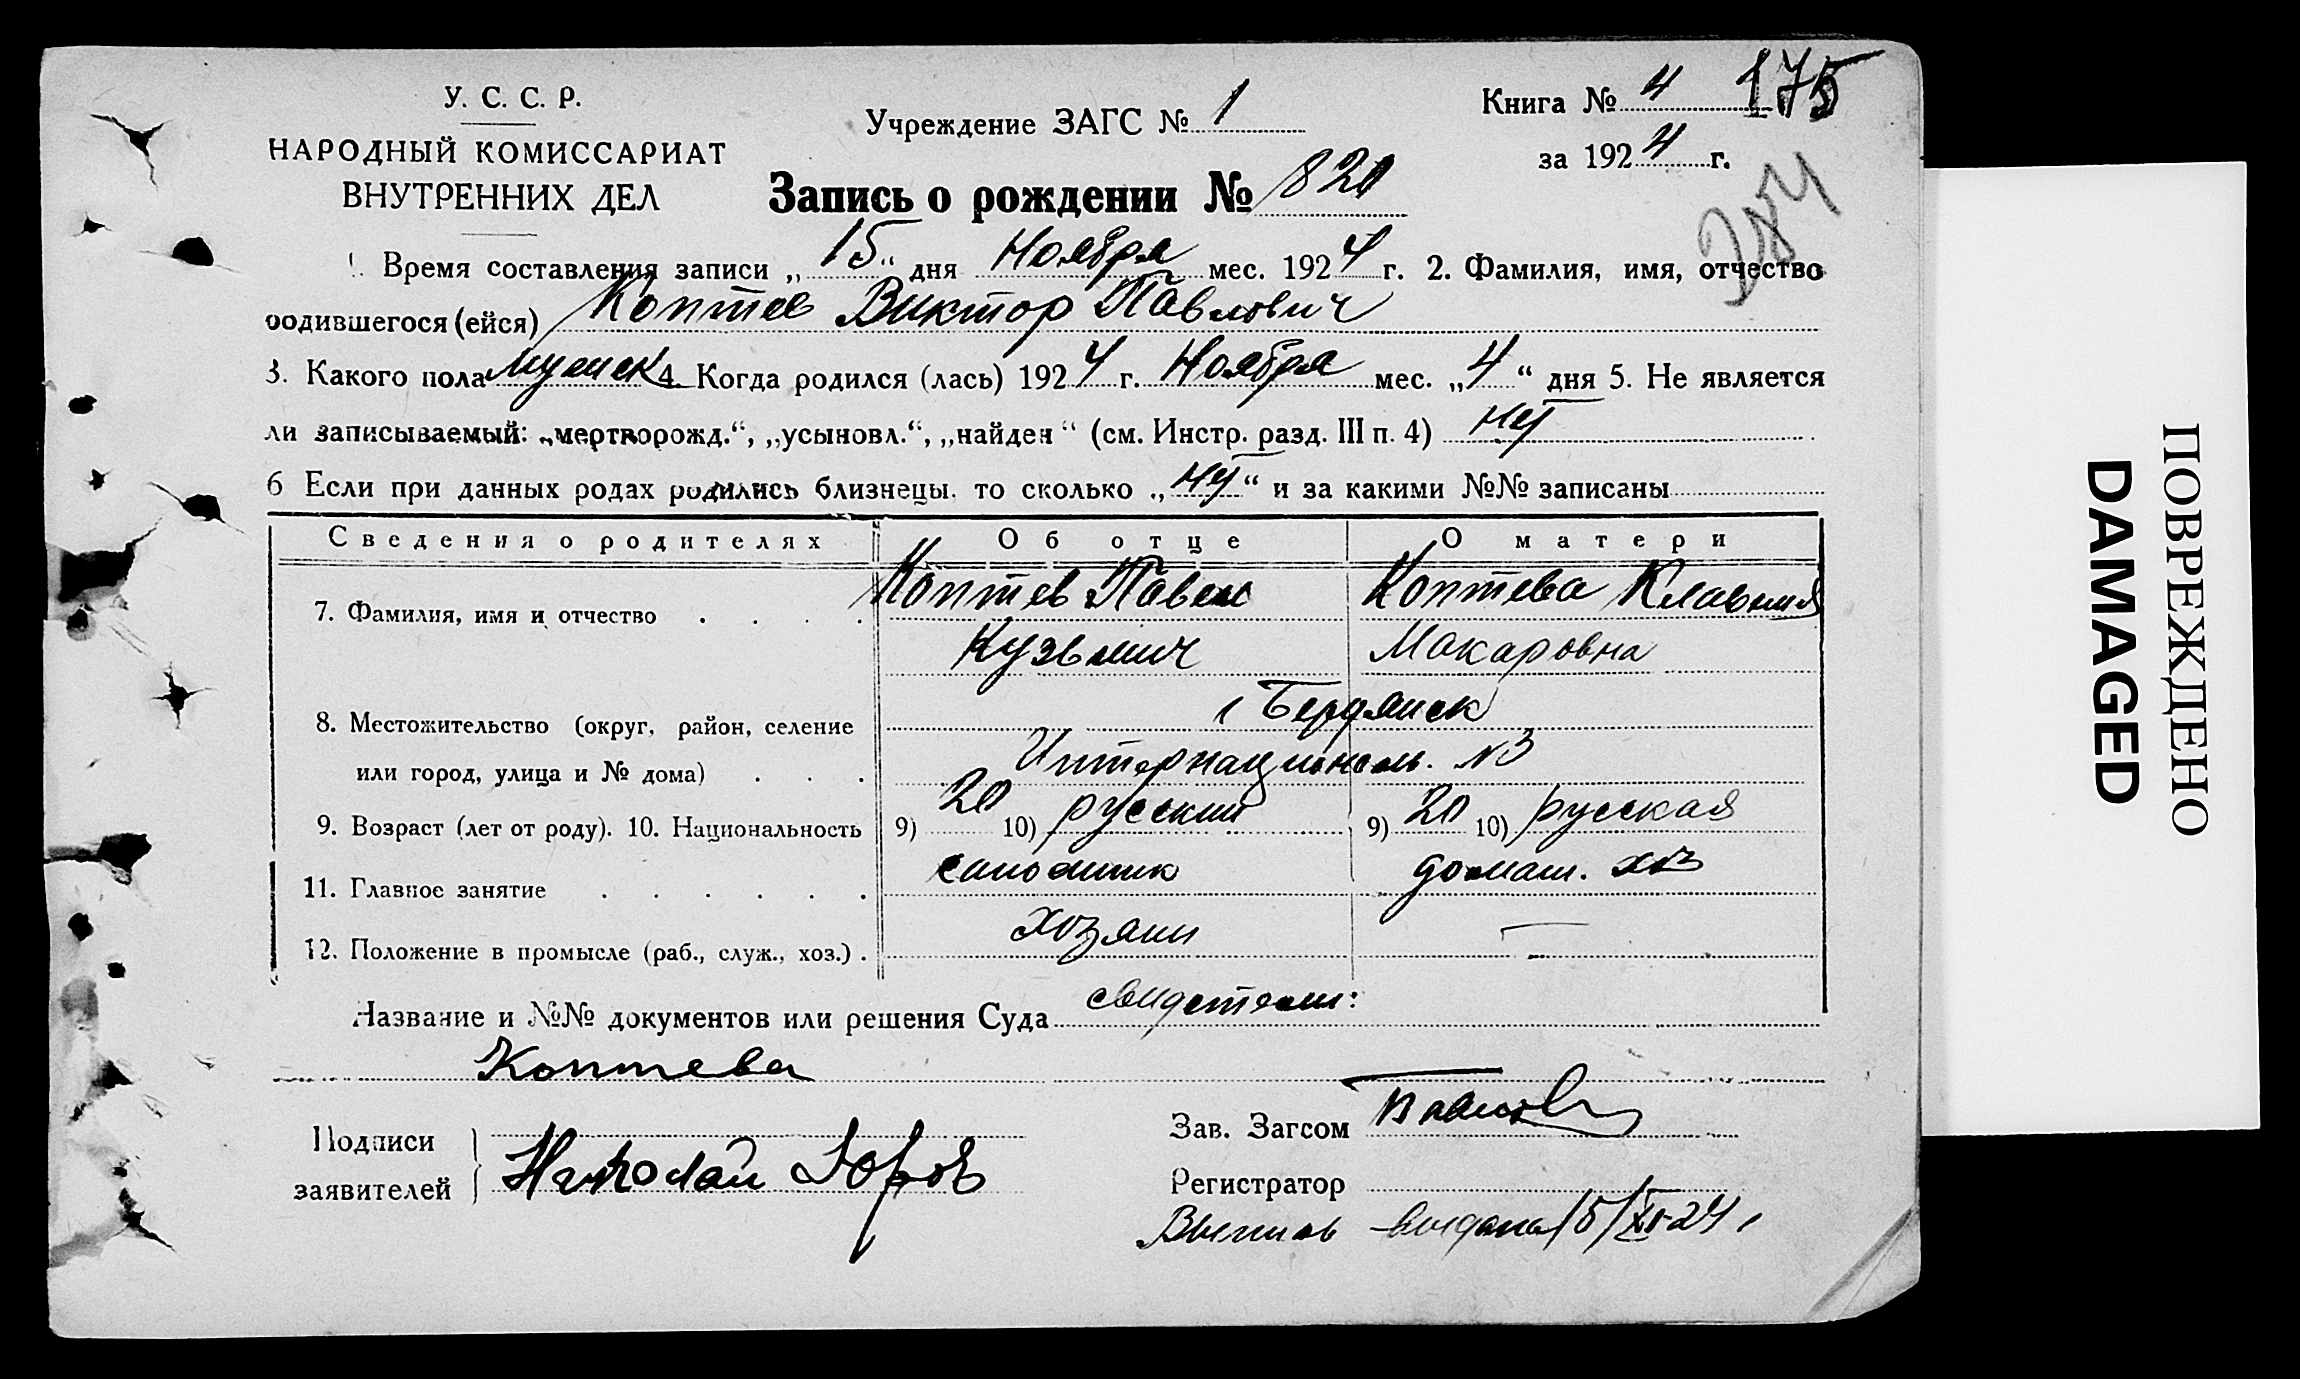 У. С. С. Р.
НАРОДНЫЙ КОМИССАРИАТ
ВНУТРЕННИХ ДЕЛ
Учреждение ЗАГС № 1
Книга № 4 175
за 1924 г.
284
Запись о рождении № 820
1. Время составления записи „15“ дня Ноября мес. 1924 г. 2. Фамилия, имя, отчество
родившегося (ейся) Коптев Виктор Павлович
3. Какого пола мужск 4. Когда родился (лась) 1924 г. Ноября мес. „4“ дня 5. Не является
ли записываемый: „мертворожд.“, „усыновл.“, „найден“ (см. Инстр. разд. III п. 4) нет
6 Если при данных родах родились близнецы, то сколько „нет“ и за какими №№ записаны
Сведения о родителях Об отце О матери
7. Фамилия, имя и отчество Коптев Павел Коптева Клавдия
Кузьмич Макаровна
8. Местожительство (округ, район, селение г Бердянск
или город, улица и № дома) Интернациональ. №3
9. Возраст (лет от роду). 10. Национальность 9) 20 10) русский 9) 20 10) русская
11. Главное занятие сапожник домаш. хоз
12. Положение в промысле (раб., служ., хоз.) хозяин —
Название и №№ документов или решения Суда свидетели:
Коптева
Подписи
заявителей
Николай
Зав. Загсом
Регистратор
Выпись выдана 15/XI-24 г
ПОВРЕЖДЕНО
DAMAGED